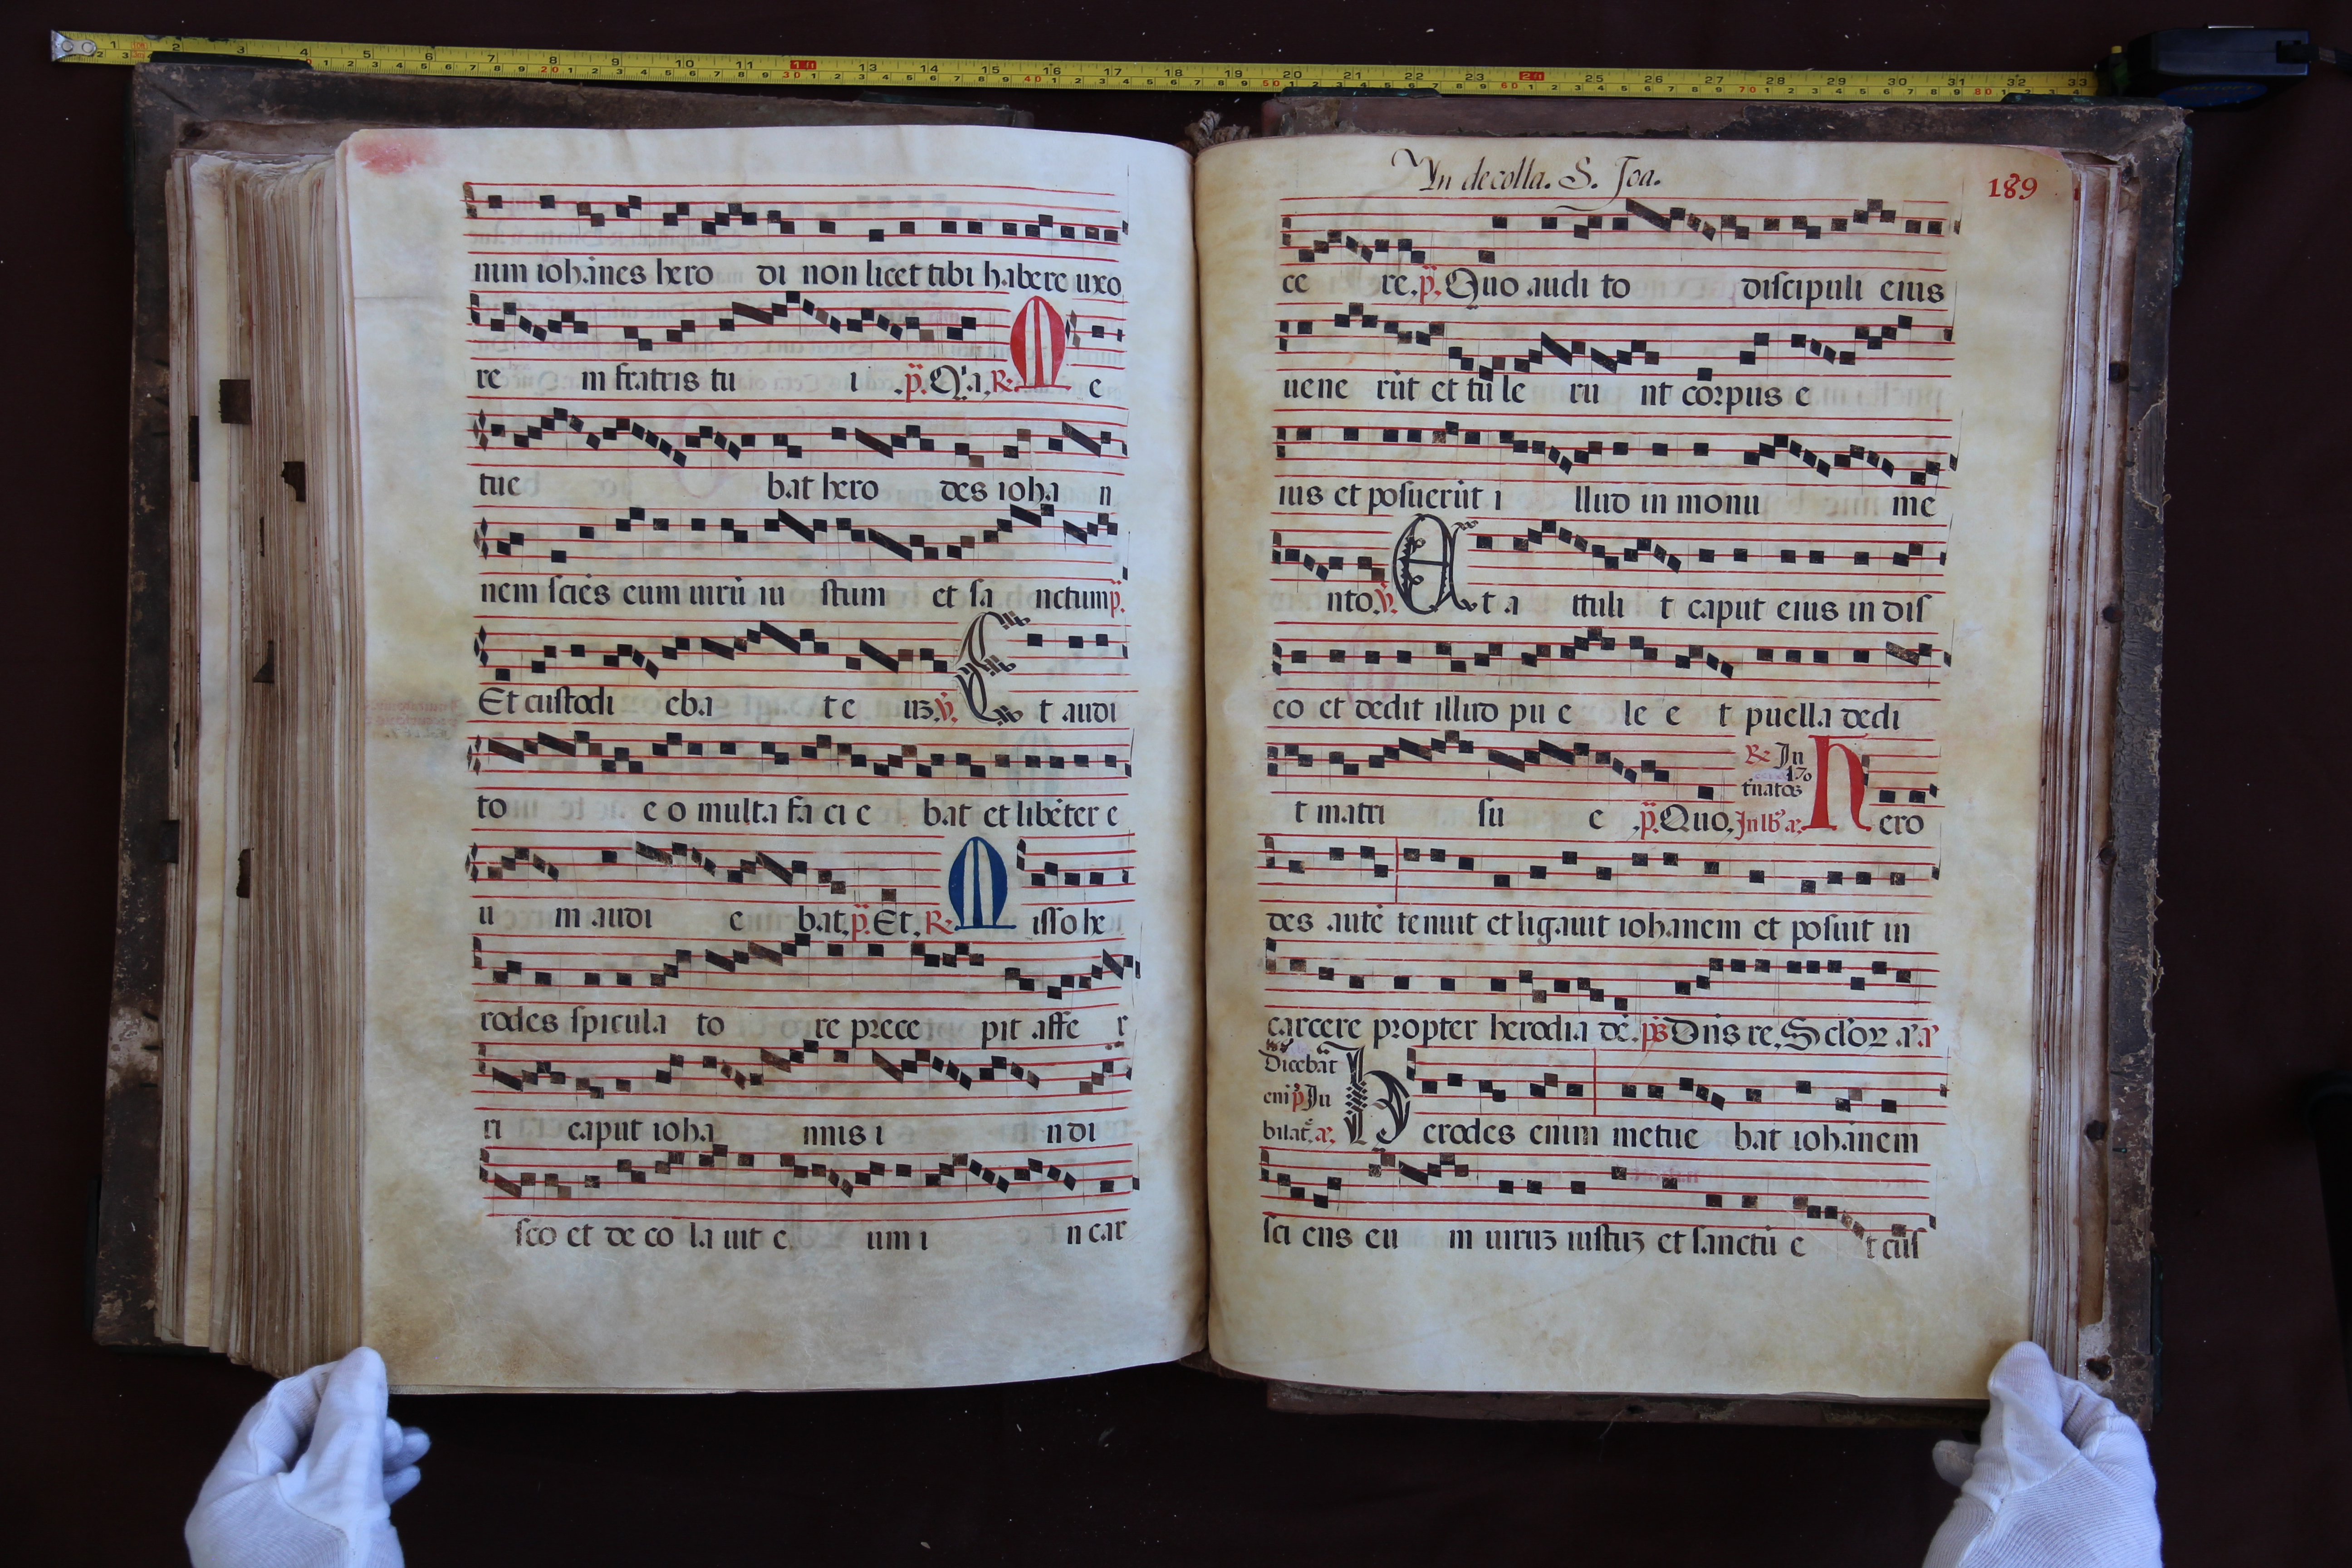 nim iohānes hero di non licet tibi habere uxo
re m fratris tu i .p̈. Q'a. R. M e
tue bat hero des ioha n
nem sciēs eum uirū iu stum et sa nctum p̈.
Et custodi eba t e uʒ. v̈. E t audi
to e o multa fa ci e bat et libēter e
u m audi e bat. p̈. Et. R. M isso he
rodes spicula to re prece pit affe r
ri caput ioha nnis i n di
sco et de co la uit e um i n car
In decolla. S. Joa.
189
ce re. p̈. Quo audi to discipuli eius
uene rūt et tu le ru nt corpus e
ius et posuerūt i llud in monu me
nto. v̈. A t a ttuli t caput eius in dis
co et dedit illud pu e le e t puella dedi
t matri su e .p̈. Quo. R. In H ero
des autē tenuit et ligauit iohanem et posuit in
carcere propter herodia dē. ps Dn̄s re.
Dicebat
eni p̄ Ju
bilat. H erodes enim metue bat iohānem
sci ens eu m uiruʒ iustuʒ et sanctū e t cus